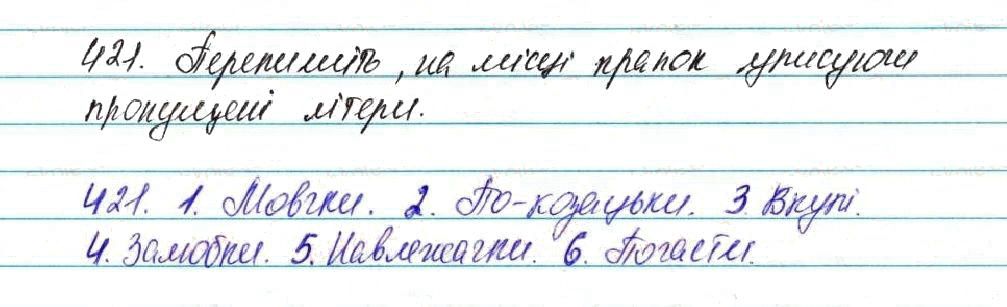 421. Перепишіть, на місці крапок уписуючи
пропущені літери.
421. 1. Мовчки. 2. По-козацьки. 3. Вкупі.
4. Залюбки. 5. Навлежачки. 6. Почасти.